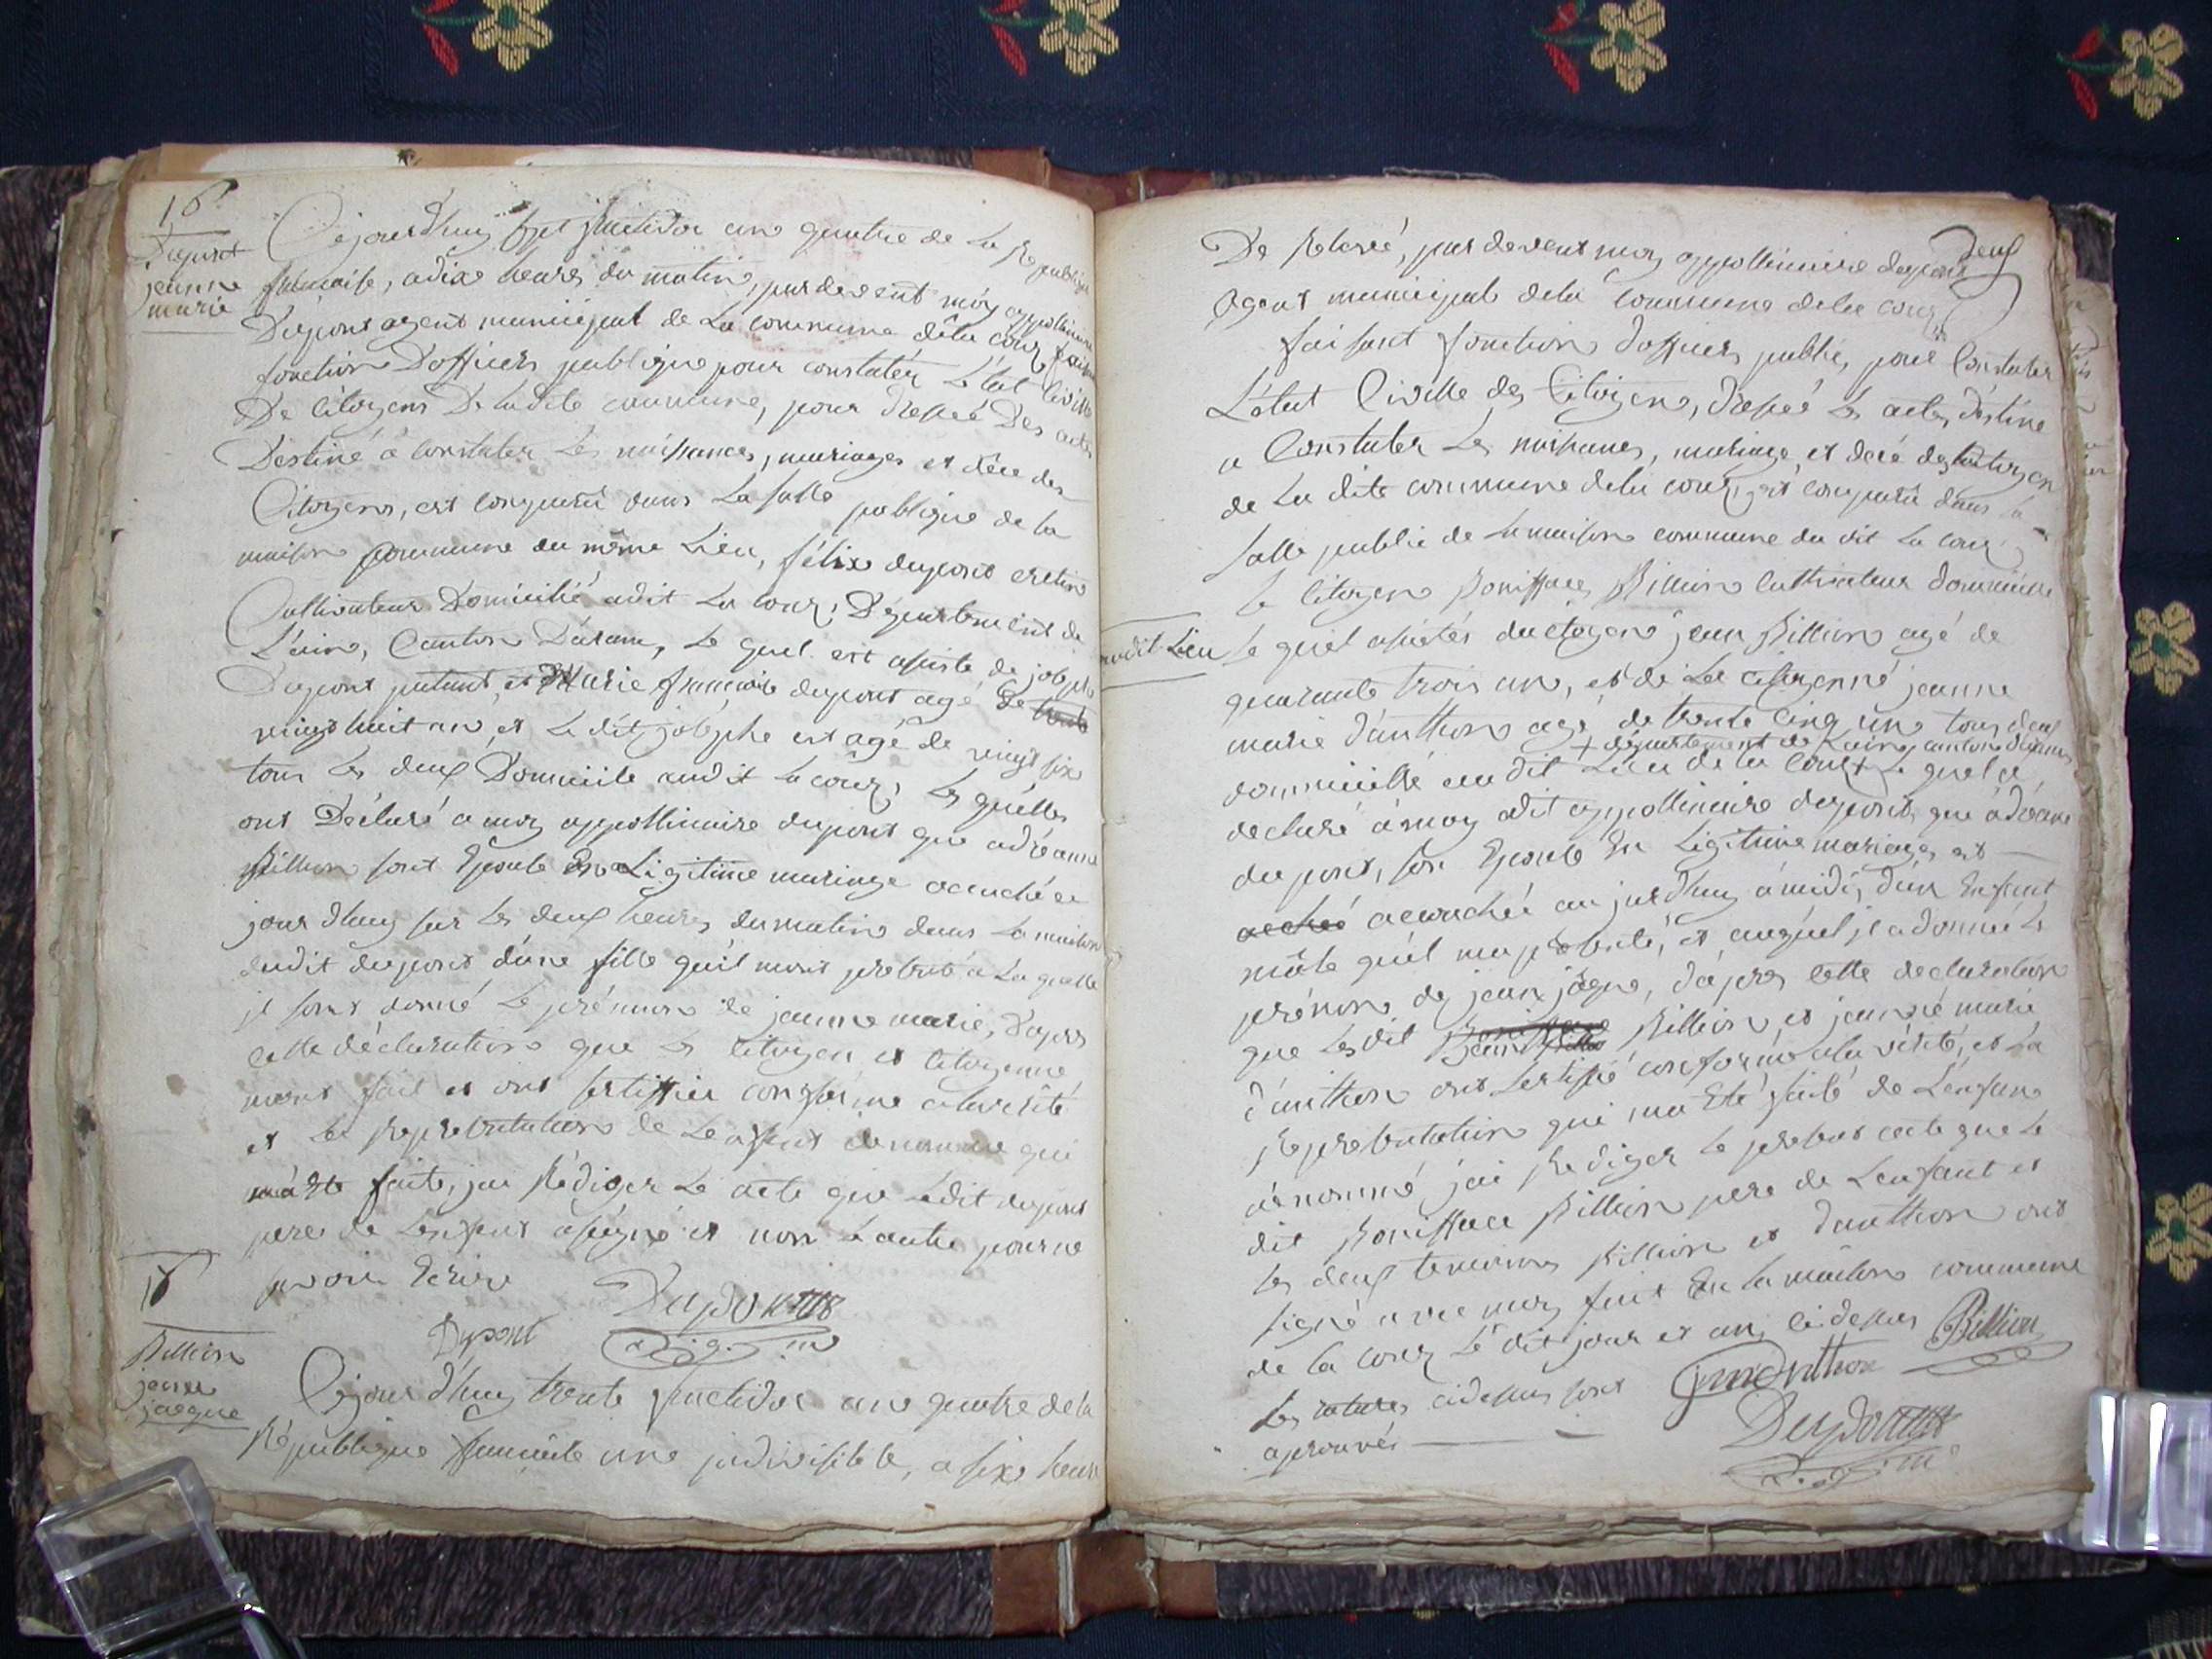 16
Dupont
jeanne
marie
Cejourd'huy sept fructidor an quatre de La Republique
francaise, adixe heures du matin, pardevent moy appollinaire
Dupont agent municipal de La commune dela coux faisant
fonction D'officier publique pour constater L'état Civille
De Citoyens De ladite commune, pour dressé Des actes
Destiné à constater Les naissances, mariages et déce des
Citoyens, est comparû dans La salle publique de la
maison commune du même Lieu, félix dupont cretin
Cultivateur Domicilié audit La coux, Département de
L'ain, Canton D'aranc, Le quel est assisté de joseph
Dupont patant, et Marie francoise dupont agé de
vingt huit an, et Le dit josephe est agé de vingt six
tous Les deux Domicile audit La coux, Les quelles
ont Déclaré a moy appollinaire dupont que adréanne
Billion sont Epouse En Legitime mariage acouchée ce
jour d'huy sur Les deux heures du matin dans La maison
dudit dupont d'une fille qu'il mont presenté a La quelle
jl sont donné Le prénom de jeanne marie, D'apres
cette déclaration que Les citoyen et citoyenne
mont fait et ont sertiffier conforme alaverité
et La Representation de Lenfant denommé qui
má Eté faite, jai Rédiger Le acte que Ledit dupont
pere de Lenfant asigné et non Lautre pour ne
savoir Ecrire
Dupont
Dupont
17
Billion
jean
jacque
Cejour d'huy trente fructidor an quatre de la
République francaise une jndivisible, a sixe heure
De Relevé, par devent moy appollinaire dupont
deux
agent municipal dela commune dela coux
faisant fonction d'officier public, pour Constater
L'état Civille des Citoyens, dressé Les actes déstiné
a Constater Les naissances, mariage, et decé des Citoyen
de La dite commune dela coux, est comparû dans la
salle public de La maison commune du dit La coux
Le citoyen Bonifface Billion cultivateur domicillié
audit Lieu Le quel asistés du citoyen jean Billion agé de
quarante trois an, et de La citoyenne jeanne
marie d'anthon agé de trente cinq an tous deux
+ département de Lain, canton d'aranc
domicillé au dit Lieu de la Coux + Le quel a
déclaré à moy adit appollinaire dupont, que adréanne
dupont, son Epouse En Legitime mariage est
acouchée aujourd'huy à midi, d'un Enfant
mâle qu'il ma presenté, et auquel jl a donné Le
prénom de jean jâque, d'apres cette declaration
que Lesdit Billion, et jeanne marie
d'anthon ont sertifié conforme ala vérité, et La
Representation qui ma Eté faite de Lenfant
denommé j'ai Rediger Le present acte que Le
dit Bonifface Billion pere de Lenfant et
Les deux temoins Billion et danthon ont
signé avec moy fait En La maison commune
de la coux Le dit jour et an cidessus
Billion
Les ratures cidessus sont
aprouvés
Dupont